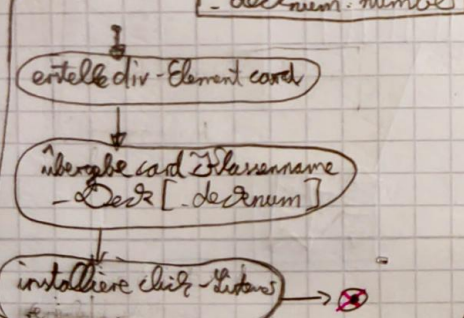 _decknum: number
erstelle div-Element card
übergebe card Klassenname
_Deck[_decknum]
installiere click-Listener